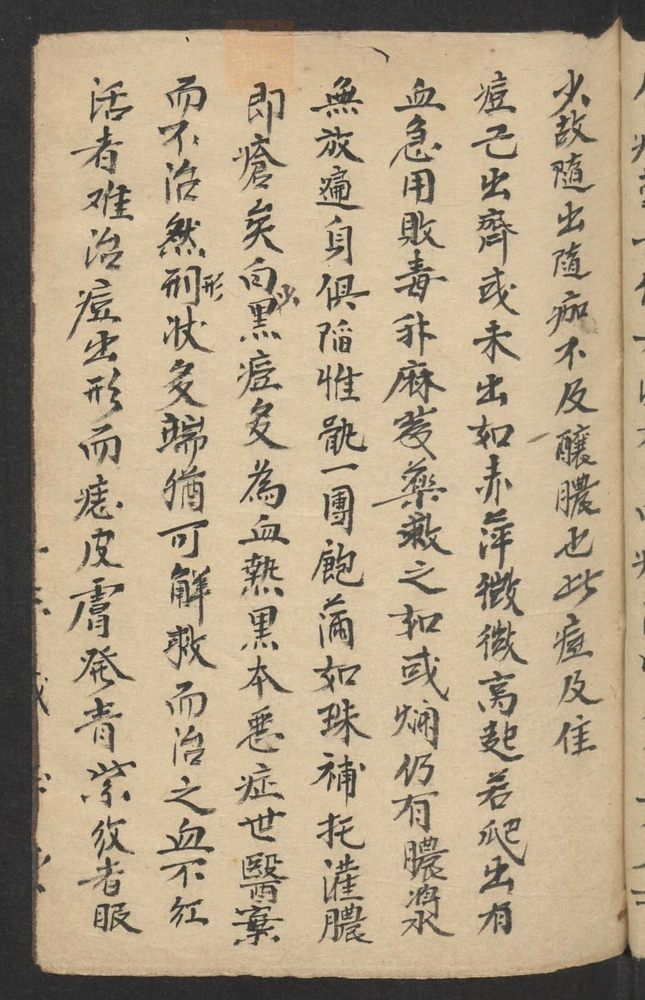 少故隨出隨痂不及釀膿也此痘及佳
痘已出齊或未出如赤萍微微高起若爬出有
血急用敗毒升麻葛藥救之如或爛仍有膿將水
無放遍身俱陷惟骩一團飽满如珠補托灌膿
即瘡矣白黑痘多為血熱黑本惡症世醫棄
少
而不治然刑狀多端猶可解救而治之血不红
形
活者难治痘出形而痣皮膚発青紫紋者眼